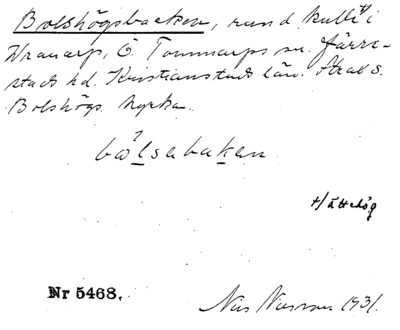 Bolshögsbacken, rund kulle +) i
Vranarp, Ö. Tommarps sn. Järre-
stads hd. Kristianstads län. Strax s.
Bolshögs kyrka.
bålsabaken
+) ättehög
Nr 5468.
Nils 1931.